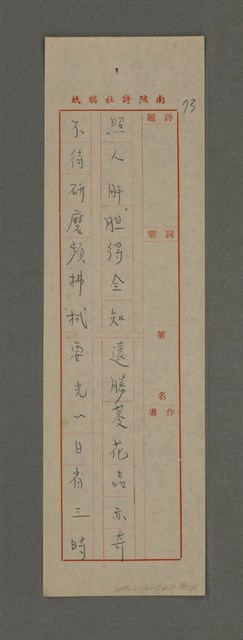 南陔詩社稿紙
73
詩題
詞宗
第 名
作者
照人肝胆得全知 遠勝菱花品亦奇
不待研磨頻拂拭 雲光一日省三時